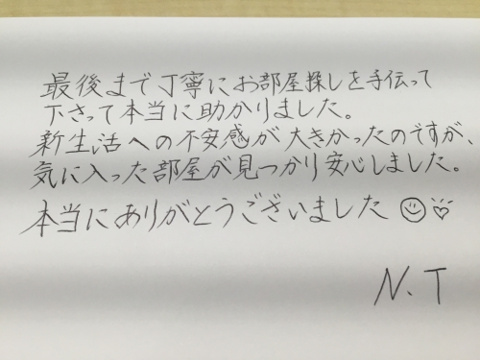 最後まで丁寧にお部屋探しを手伝って
下さって本当に助かりました。
新生活への不安感が大きかったのですが、
気に入った部屋が見つかり安心しました。
本当にありがとうございました
N.T